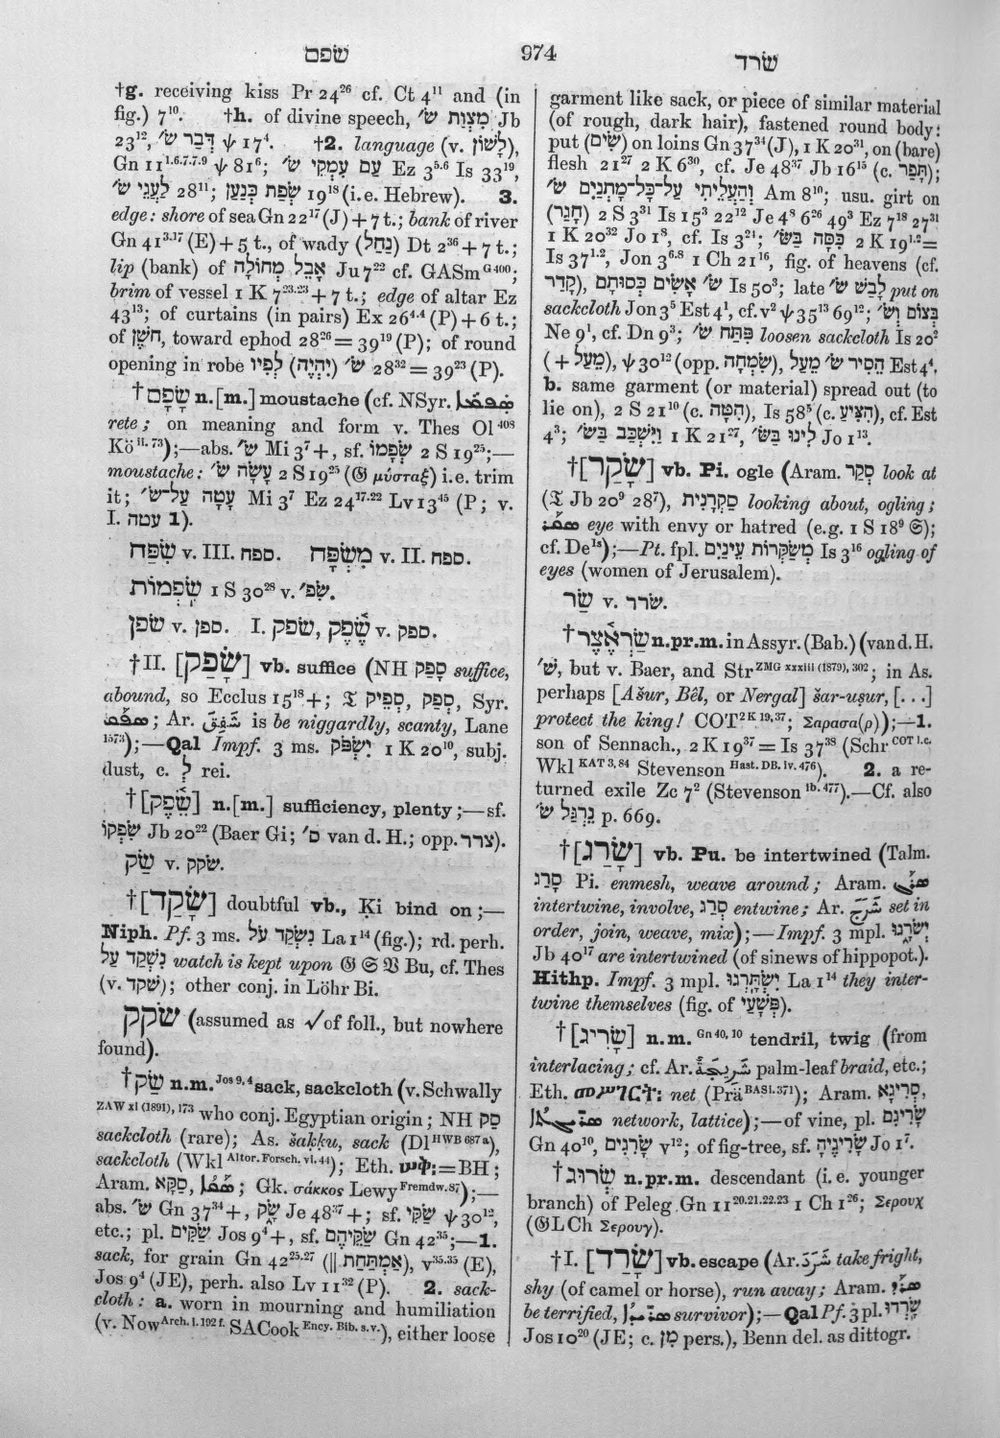 שׂפם
974
שׂרד
†g. receiving kiss Pr 24²⁶ cf. Ct 4¹¹ and (in
fig.) 7¹⁰. †h. of divine speech, מִצְוַת שׂ׳ Jb
23¹², דְּבַר שׂ׳ ψ 17⁴. †2. language (v. לָשׁוֹן),
Gn 11¹·⁶·⁷·⁷·⁹ ψ 81⁶; עַם עִמְקֵי שׂ׳ Ez 3⁵·⁶ Is 33¹⁹,
לַעֲגֵי שׂ׳ 28¹¹; שְׂפַת כְּנַעַן 19¹⁸ (i.e. Hebrew). 3.
edge: shore of sea Gn 22¹⁷ (J) + 7 t.; bank of river
Gn 41³·¹⁷ (E) + 5 t., of wady (נַחַל) Dt 2³⁶ + 7 t.;
lip (bank) of אָבֵל מְחוֹלָה Ju 7²² cf. GASm G 400;
brim of vessel 1 K 7²³·²³ + 7 t.; edge of altar Ez
43¹³; of curtains (in pairs) Ex 26⁴·⁴ (P) + 6 t.;
of חֹשֶׁן, toward ephod 28²⁶ = 39¹⁹ (P); of round
opening in robe לְפִיו (יִהְיֶה) שׂ׳ 28³² = 39²³ (P).
†שָׂפָם n.[m.] moustache (cf. NSyr.
rete; on meaning and form v. Thes Ol 408
Kö ii. 73);—abs. שׂ׳ Mi 3⁷ +, sf. שְׂפָמוֹ 2 S 19²⁵;—
moustache: עָשָׂה שׂ׳ 2 S 19²⁵ (𝔊 μύσταξ) i.e. trim
it; עָטָה עַל־שׂ׳ Mi 3⁷ Ez 24¹⁷·²² Lv 13⁴⁵ (P; v.
I. עטה 1).
שִׂפַּח v. III. ספח. מִשְׂפָּח v. II. ספח.
שִׂפְמוֹת 1 S 30²⁸ v. שִׂפ׳.
שׂפן v. ספן. I. שׂפק, שֶׂפֶק v. ספק.
†II. [שָׂפַק] vb. suffice (NH סָפַק suffice,
abound, so Ecclus 15¹⁸ +; 𝔗 סְפַק, סְפֵיק, Syr.
ܣܦܩ; Ar. شَفَقَ is be niggardly, scanty, Lane
1573);—Qal Impf. 3 ms. יִשְׂפֹּק 1 K 20¹⁰, subj.
dust, c. לְ rei.
†[שֵׂפֶק] n.[m.] sufficiency, plenty;—sf.
שִׂפְקוֹ Jb 20²² (Baer Gi; ס׳ van d. H.; opp. צרר).
שַׂק v. שׂקק.
†[שָׂקַד] doubtful vb., Ḳi bind on;—
Niph. Pf. 3 ms. נִשְׂקַד עֹל La 1¹⁴ (fig.); rd. perh.
נִשְׁקַד עַל watch is kept upon 𝔊 𝔖 𝔙 Bu, cf. Thes
(v. שׁקד); other conj. in Löhr Bi.
שׂקק (assumed as √ of foll., but nowhere
found).
†שַׂק n.m. Jos 9, 4 sack, sackcloth (v. Schwally
ZAW xi (1891), 173 who conj. Egyptian origin; NH סַק
sackcloth (rare); As. šaḳḳu, sack (Dl HWB 687 a),
sackcloth (Wkl Altor. Forsch. vi. 44); Eth. ሠቅ፡ = BH;
Aram. סַקָּא, ܣܩܐ; Gk. σάκκος Lewy Fremdw. 87);—
abs. שׂ׳ Gn 37³⁴ +, שָׂק Je 48³⁷ +; sf. שַׂקִּי ψ 30¹²,
etc.; pl. שַׂקִּים Jos 9⁴ +, sf. שַׂקֵּיהֶם Gn 42³⁵;—1.
sack, for grain Gn 42²⁵·²⁷ (‖ אַמְתַּחַת), v³⁵·³⁵ (E),
Jos 9⁴ (JE), perh. also Lv 11³² (P). 2. sack-
cloth: a. worn in mourning and humiliation
(v. Now Arch. i. 192 f. SACook Ency. Bib. s.v.), either loose
garment like sack, or piece of similar material
(of rough, dark hair), fastened round body:
put (שִׂים) on loins Gn 37³⁴ (J), 1 K 20³¹, on (bare)
flesh 21²⁷ 2 K 6³⁰, cf. Je 48³⁷ Jb 16¹⁵ (c. תָּפַר);
וְהַעֲלֵיתִי עַל־כָּל־מָתְנַיִם שׂ׳ Am 8¹⁰; usu. girt on
(חָגַר) 2 S 3³¹ Is 15³ 22¹² Je 4⁸ 6²⁶ 49³ Ez 7¹⁸ 27³¹
1 K 20³² Jo 1⁸, cf. Is 3²⁴; כִּסָּה בַּשׂ׳ 2 K 19¹·² =
Is 37¹·², Jon 3⁶·⁸ 1 Ch 21¹⁶, fig. of heavens (cf.
קָדַר), שׂ׳ אָשִׂים כְּסוּתָם Is 50³; late לָבַשׁ שׂ׳ put on
sackcloth Jon 3⁵ Est 4¹, cf. v² ψ 35¹³ 69¹²; בְּצוֹם וְשׂ׳
Ne 9¹, cf. Dn 9³; פִּתַּח שׂ׳ loosen sackcloth Is 20²
(+ מֵעַל), ψ 30¹² (opp. שִׂמְחָה), הֵסִיר שׂ׳ מֵעַל Est 4⁴.
b. same garment (or material) spread out (to
lie on), 2 S 21¹⁰ (c. הִטָּה), Is 58⁵ (c. הִצִּיעַ), cf. Est
4³; וַיִּשְׁכַּב בַּשׂ׳ 1 K 21²⁷, לִינוּ בַּשׂ׳ Jo 1¹³.
†[שָׂקַר] vb. Pi. ogle (Aram. סְקַר look at
(𝔗 Jb 20⁹ 28⁷), סַקְרָנִית looking about, ogling;
ܣܩܪ eye with envy or hatred (e.g. 1 S 18⁹ 𝔖);
cf. De Is);—Pt. fpl. מְשַׂקְּרוֹת עֵינַיִם Is 3¹⁶ ogling of
eyes (women of Jerusalem).
שַׂר v. שׂרר.
†שַׂרְאֶצֶר n.pr.m. in Assyr. (Bab.) (van d. H.
שׁ׳, but v. Baer, and Str ZMG xxxiii (1879), 302; in As.
perhaps [Ašur, Bêl, or Nergal] šar-uṣur, [...]
protect the king! COT 2 K 19, 37; Σαρασα(ρ));—1.
son of Sennach., 2 K 19³⁷ = Is 37³⁸ (Schr COT l.c.
Wkl KAT 3, 84 Stevenson Hast. DB. iv. 476). 2. a re-
turned exile Zc 7² (Stevenson ib. 477).—Cf. also
נֵרְגַל שׂ׳ p. 669.
†[שָׂרַג] vb. Pu. be intertwined (Talm.
סָרַג Pi. enmesh, weave around; Aram. ܣܪܓ
intertwine, involve, סְרַג entwine; Ar. شَرَّجَ set in
order, join, weave, mix);—Impf. 3 mpl. יְשֹׂרָגוּ
Jb 40¹⁷ are intertwined (of sinews of hippopot.).
Hithp. Impf. 3 mpl. יִשְׂתָּרְגוּ La 1¹⁴ they inter-
twine themselves (fig. of פְּשָׁעַי).
†[שָׂרִיג] n.m. Gn 40, 10 tendril, twig (from
interlacing; cf. Ar. شَرِيجَة palm-leaf braid, etc.;
Eth. net (Prä BASi. 371); Aram. סְרִינָא,
network, lattice);—of vine, pl. שָׂרִיגִם
Gn 40¹⁰, שָׂרִגִים v¹²; of fig-tree, sf. שָׂרִיגֶיהָ Jo 1⁷.
†שְׂרוּג n.pr.m. descendant (i.e. younger
branch) of Peleg Gn 11²⁰·²¹·²²·²³ 1 Ch 1²⁶; Σερουχ
(𝔊L Ch Σερουγ).
†I. [שָׂרַד] vb. escape (Ar. شَرَدَ take fright,
shy (of camel or horse), run away; Aram. ܣܪܕ
be terrified, survivor);—Qal Pf. 3 pl. שָׂרְדוּ
Jos 10²⁰ (JE; c. מִן pers.), Benn del. as dittogr.